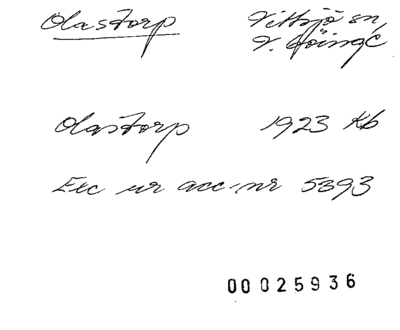 Olastorp Vittsjö sn
V. Göinge
Olastorp 1923 Kb
Exc ur acc.nr 5393
00025936